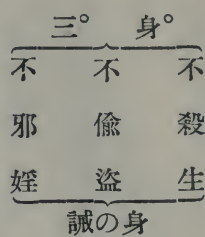 身° 三°
不殺生
不偸盗
不邪婬
誡の身